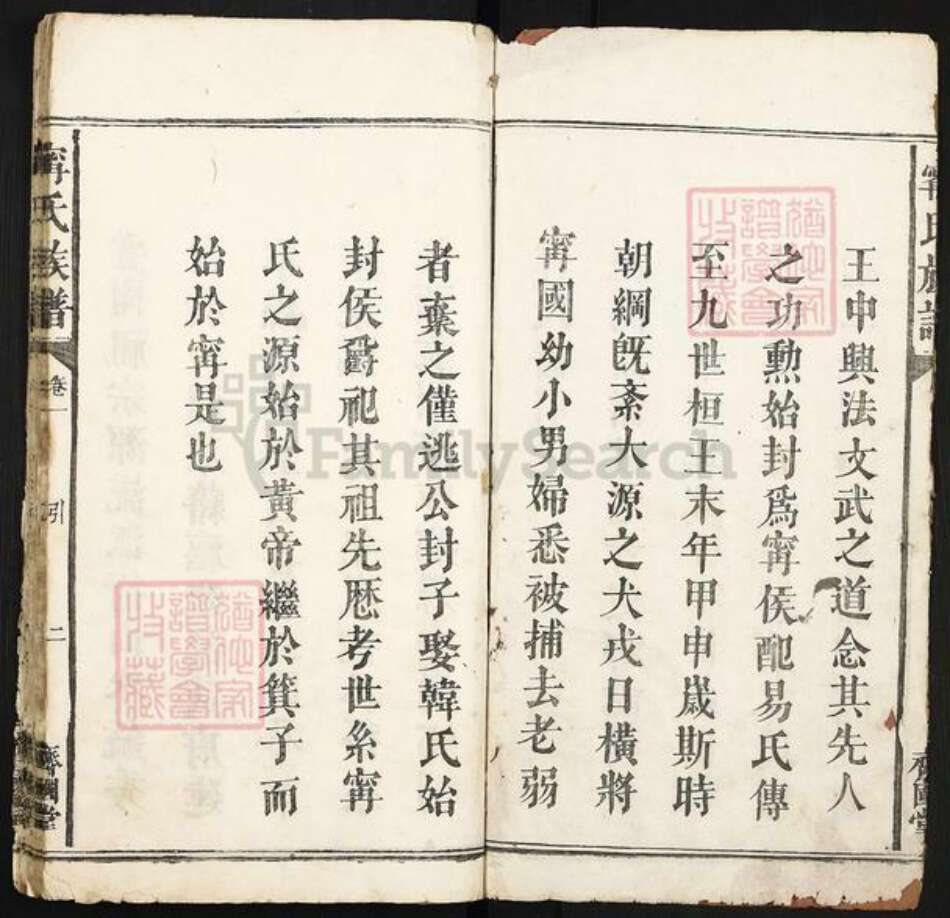 甯氏族譜
王中興法文武之道念其先人
之功勲始封爲甯侯配易氏傳
至九世桓王末年甲申歲斯時
朝綱旣紊大源之犬戎日橫將
甯國幼小男婦悉被捕去老弱
者棄之僅逃公封子娶韓氏始
封侯爵祀其祖先厯考世糸甯
氏之源始於黃帝繼於箕子而
始於甯是也
甯氏族譜
卷一
引
二
齊國堂
齊國堂
譜學會
收藏
譜學會
收藏
FamilySearch